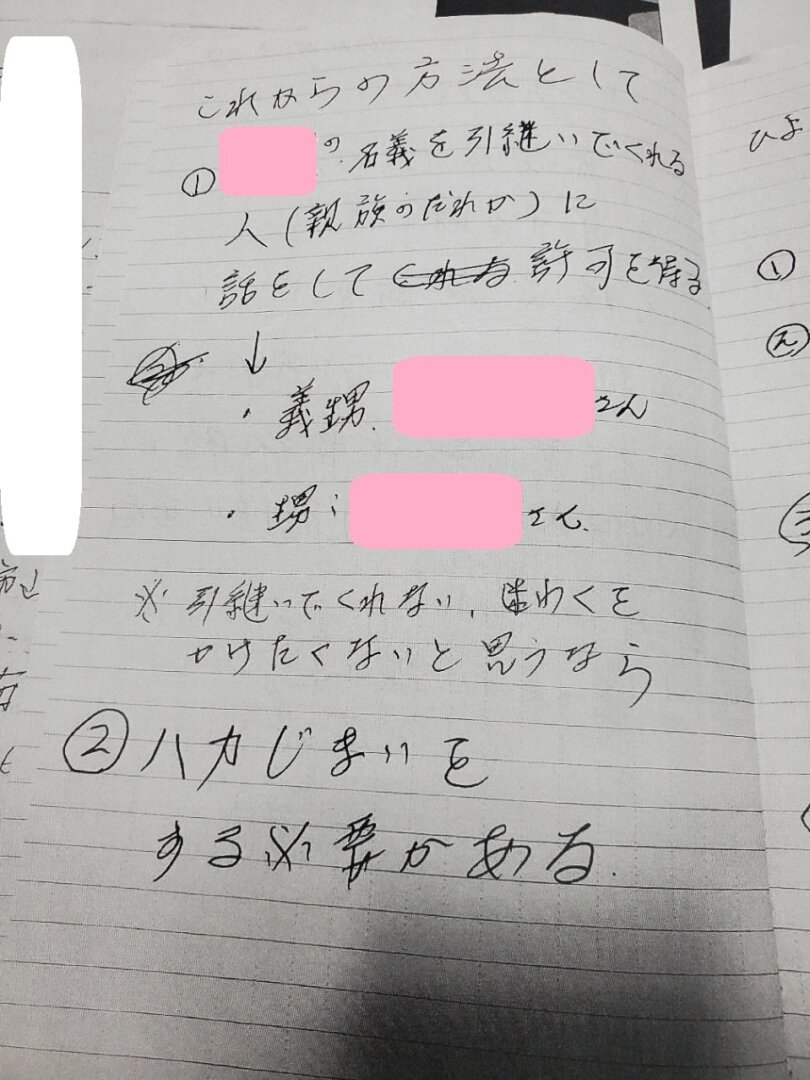 これからの方法として
① の名義を引継いでくれる
人(親族のだれか)に
話をして 許可を得る
↓
・義甥. さん
・甥: さん.
※引継いでくれない、迷わくを
かけたくないと思うなら
②ハカじまいを
する必要がある.
ひよ
①